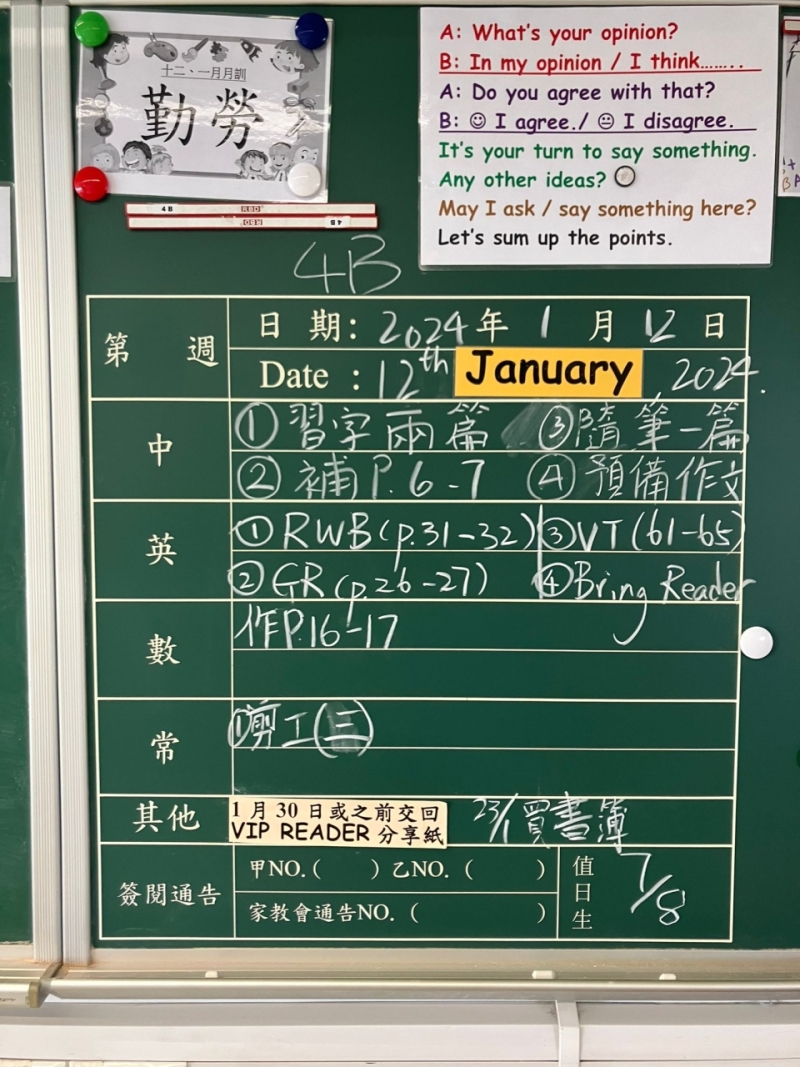 十二、一月月訓
勤勞
A: What's your opinion?
B: In my opinion / I think........
A: Do you agree with that?
B: ☺ I agree./ 😐 I disagree.
It's your turn to say something.
Any other ideas?
May I ask / say something here?
Let's sum up the points.
4B RBD
4B RBD
4B
第 週
日 期: 2024 年 1 月 12 日
Date : 12th January, 2024.
中
① 習字兩篇 ③ 隨筆一篇
② 補 P.6-7 ④ 預備作文
英
① RWB (p.31-32) ③ VT (61-65)
② GR (p.26-27) ④ Bring Reader
數
作P.16-17
常
① 剪工(三)
其他
1 月 30 日或之前交回
VIP READER 分享紙
23/1 買書簿
簽閱通告
甲NO. ( ) 乙NO. ( )
家教會通告NO. ( )
值日生
7/8